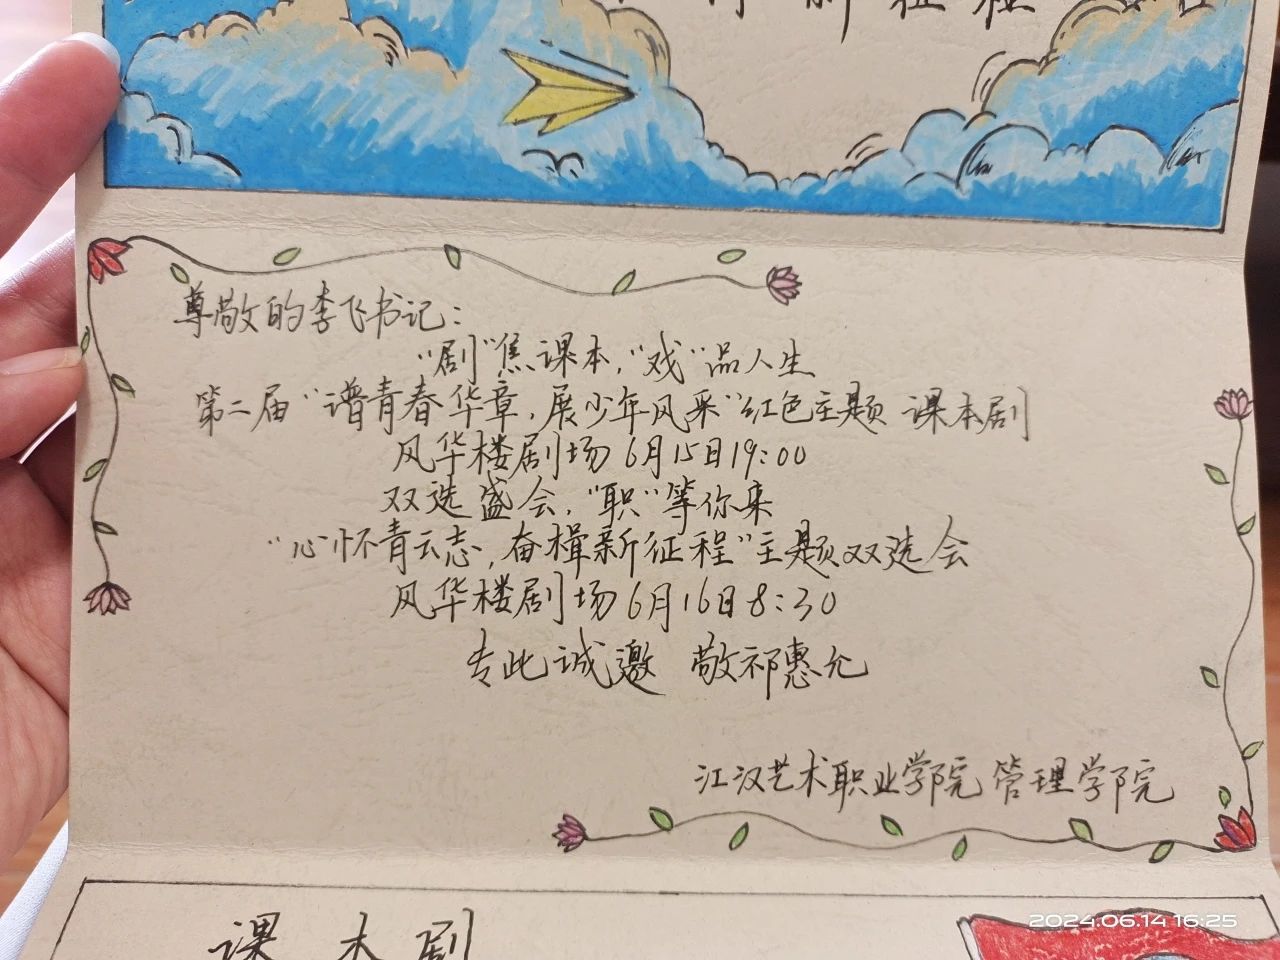 新征程
尊敬的李飞书记：
“剧”焦课本，“戏”品人生
第二届“谱青春华章，展少年风采”红色主题 课本剧
风华楼剧场6月15日19:00
双选盛会，“职”等你来
“心怀青云志，奋楫新征程”主题双选会
风华楼剧场6月16日8:30
专此诚邀 敬祁惠允
江汉艺术职业学院 管理学院
课本剧
2024.06.14 16:25